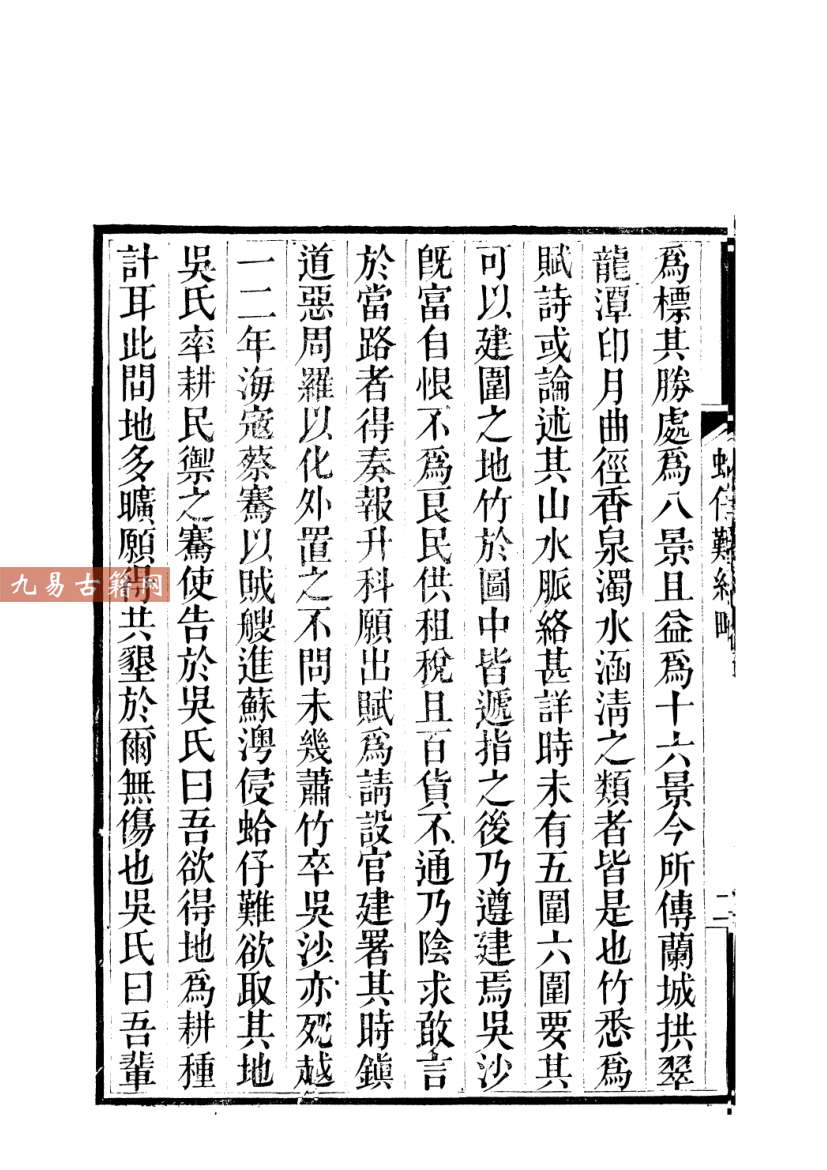 爲標其勝處爲八景且益爲十六景今所傳蘭城拱翠
龍潭印月曲徑香泉濁水涵清之類者皆是也竹悉爲
賦詩或論述其山水脈絡甚詳時未有五圍六圍要其
可以建圍之地竹於圖中皆遞指之後乃遵建焉吳沙
既富自恨不爲良民供租稅且百貨不通乃陰求敢言
於當路者得奏報升科願出賦爲請設官建署其時鎭
道惡周羅以化外置之不問未幾蕭竹卒吳沙亦死越
一二年海寇蔡騫以賊艘進蘇澚侵蛤仔難欲取其地
吳氏率耕民禦之騫使告於吳氏曰吾欲得地爲耕種
計耳此間地多曠願得共墾於爾無傷也吳氏曰吾輩
蛤仔難紀略
二
九易古籍网